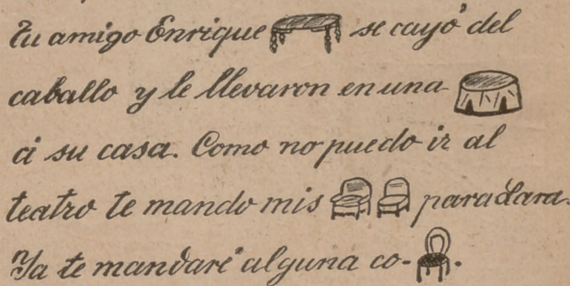 Tu amigo Enrique se cayó del
caballo y le llevaron en una
á su casa. Como no puedo ir al
teatro te mando mis para Lara.
Ya te mandaré alguna co-.